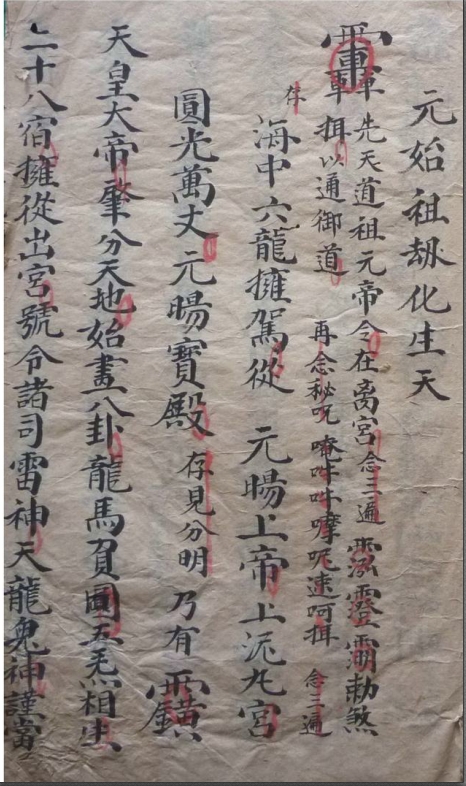 元始祖劫化生天
先天道祖元帝令在离宮念三遍
勅煞
揖以通御道 再念秘呪唵吽吽摩呢速呵揖 念三遍
存 海中六龍擁駕從 元暘上帝上泥丸宮
圓光萬丈元暘寶殿存見分明乃有
天皇大帝肇分天地始畫八卦龍馬負圖五炁相生
二十八宿擁從出宮號令諸司雷神天龍鬼神謹當